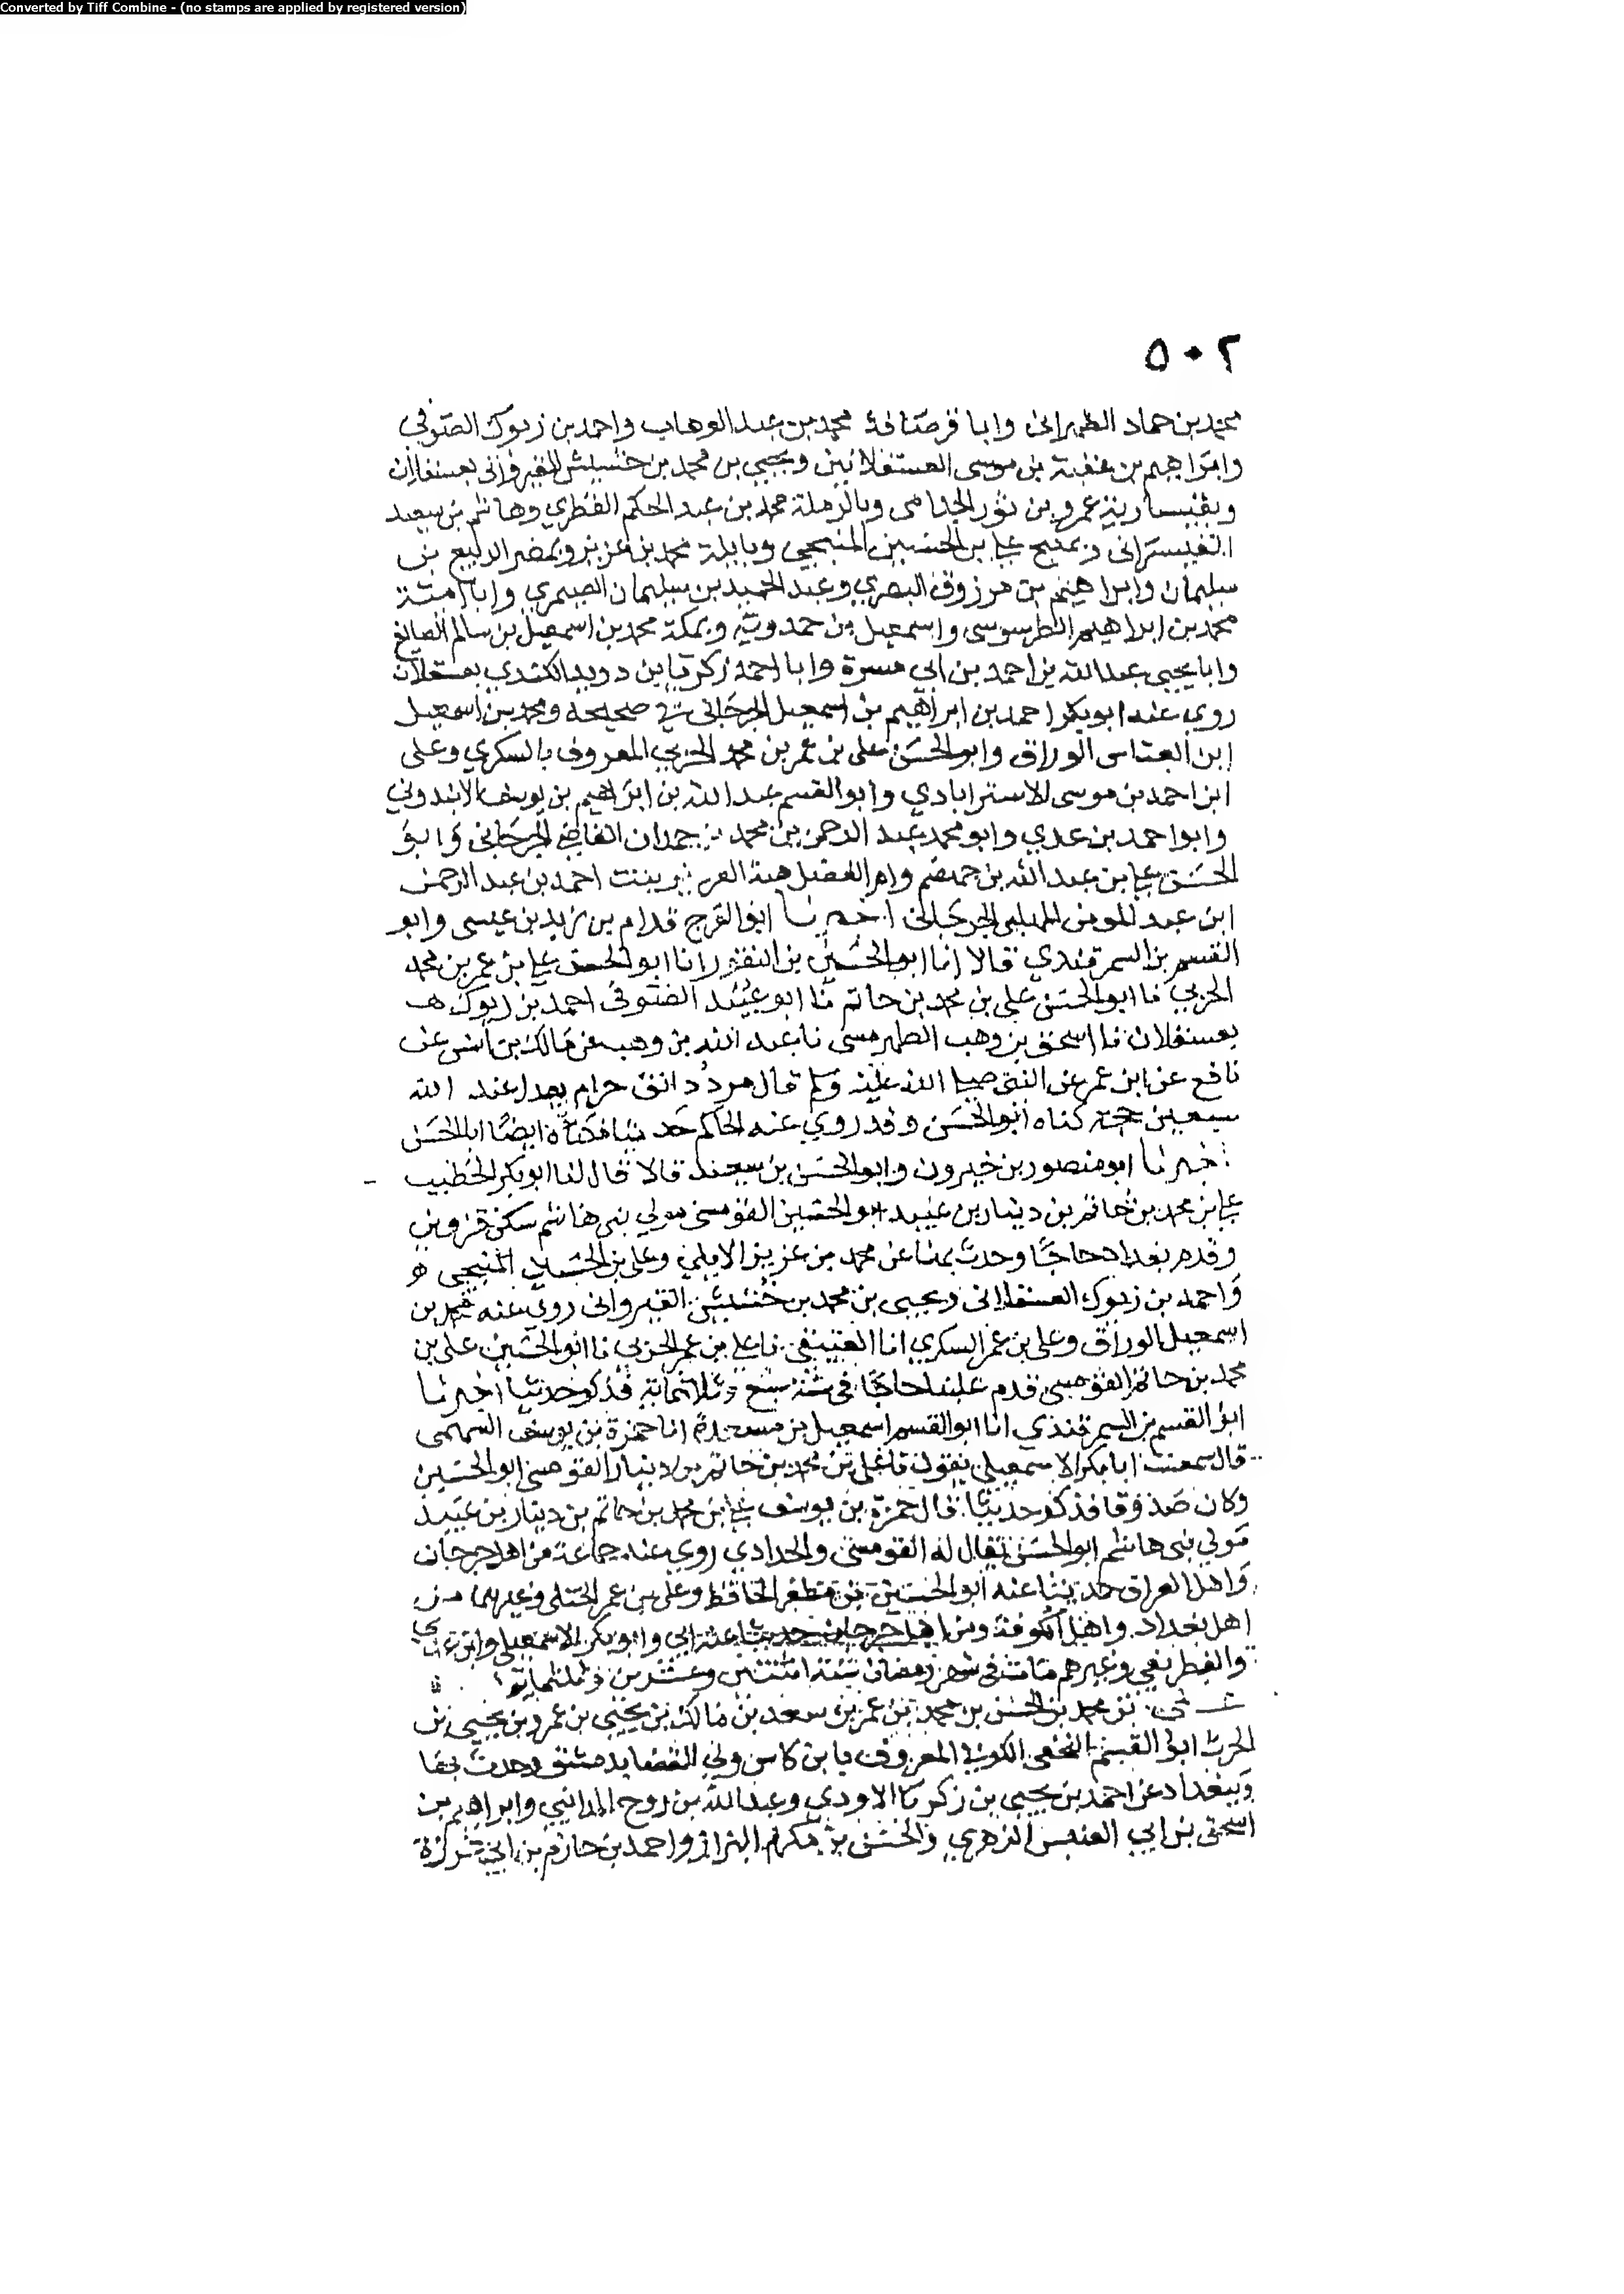 Converted by Tiff Combine - (no stamps are applied by registered version)
٥٠٢
محمد بن حماد الطهراني وابا قرصافة محمد بن عبد الوهاب واحمد بن زيوك الصوفي
وابراهيم بن عقبة بن موسى العسقلانيين ويحيى بن محمد بن خشيش القيرواني بعسقلان
وبقيسارية عمرو بن ثور الجذامي وبالرملة محمد بن عبد الحكم القطري وهاشم بن سعيد
القيسراني وبمنبج علي بن الحسين المنبجي وبايلة محمد بن عزيز وبمصر الربيع بن
سليمان وابراهيم بن مرزوق البصري وعبد الحميد بن سليمان الصيمري وابا امية
محمد بن ابراهيم الطرسوسي واسمعيل بن حمدويه وبمكة محمد بن اسمعيل بن سالم الصايغ
وابا يحيى عبد الله بن احمد بن ابي مسرة وابا احمد زكريا بن دويد الكندي بعسقلان
روى عنه ابو بكر احمد بن ابراهيم بن اسمعيل الجرجاني في صحيحه ومحمد بن اسمعيل
ابن العباس الوراق وابو الحسن علي بن عمر بن محمد الحربي المعروف بالسكري وعلي
ابن احمد بن موسى الاسترابادي وابو القسم عبد الله بن ابراهيم بن يوسف الابندوني
وابو احمد بن عدي وابو محمد عبد الرحمن بن محمد بن حمدان القاضي الجرجاني وابو
الحسن علي بن عبد الله بن جهضم وام الفضل هبة العزيز بنت احمد بن عبد الرحمن
ابن عبد المومن المهلبي الجرجاني اخبرنا ابو الفرج قدام بن زيد بن عيسى وابو
القسم بن السمرقندي قالا انا ابو الحسين بن النقور انا ابو الحسن علي بن عمر بن محمد
الحربي نا ابو الحسن علي بن محمد بن حاتم نا ابو عبيد الصوفي احمد بن زيوك
بعسقلان نا اسحق بن وهب الطهرمسي نا عبد الله بن وهب عن مالك بن انس عن
نافع عن ابن عمر عن النبي صلى الله عليه وسلم قال مرد دانق حرام يعدل عند الله
سبعين حجة كناه ابو الحسن وقد روى عنه الحاكم حديثا فكناه ايضا ابا الحسن
اخبرنا ابو منصور بن خيرون وابو الحسن بن سعيد قالا قال لنا ابو بكر الخطيب
علي بن محمد بن حاتم بن دينار بن عبيد ابو الحسين القومسي مولى بني هاشم سكن قزوين
وقدم بغداد حاجا وحدث بها عن محمد بن عزيز الايلي وعلي بن الحسين المنبجي
واحمد بن زيوك العسقلاني ويحيى بن محمد بن خشيش القيرواني روى عنه محمد بن
اسمعيل الوراق وعلي بن عمر السكري انا العتيقي نا علي بن عمر الحربي نا ابو الحسين علي بن
محمد بن حاتم القومسي قدم علينا حاجا في سنة سبع وثلاثماية فذكر حديثا اخبرنا
ابو القسم بن السمرقندي انا ابو القسم اسمعيل بن مسعدة انا حمزة بن يوسف السهمي
قال سمعت ابا بكر الاسمعيلي يقول نا علي بن محمد بن حاتم بن دينار القومسي ابو الحسين
وكان صدوقا فذكر حديثا قال حمزة بن يوسف علي بن محمد بن حاتم بن دينار بن عبيد
مولى بني هاشم ابو الحسن يقال له القومسي والحدادي روى عنه جماعة من اهل جرجان
واهل العراق حديثنا عنه ابو الحسين بن مظفر الحافظ وعلي بن عمر الختلي وغيرهما من
اهل بغداد واهل الكوفة ومن اهل جرجان حديثنا عنه ابي وابو بكر الاسمعيلي وابن عدي
والغطريفي وغيرهم مات في شهر رمضان سنة اثنتين وعشرين وثلثماية
علي بن محمد بن الحسن بن محمد بن عمر بن سعد بن مالك بن يحيى بن عمرو بن يحيى بن
الحرث ابو القسم النخعي الكوفي المعروف بابن كاس ولي القضا بدمشق وحدث بها
وببغداد عن احمد بن يحيى بن زكريا الاودي وعبد الله بن روح المدايني وابراهيم بن
اسحق بن ابي العنبس الزهري والحسن بن مكرم البزاز واحمد بن حازم بن ابي غرزة